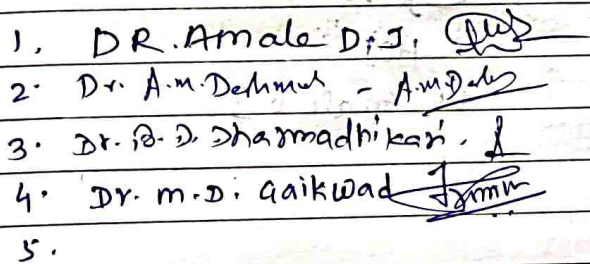 1. DR. Amale D. J.
2. Dr. A.M. Deshmukh - A.M.Desh
3. Dr. B. D. Dharmadhikari.
4. Dr. M. D. Gaikwad
5.